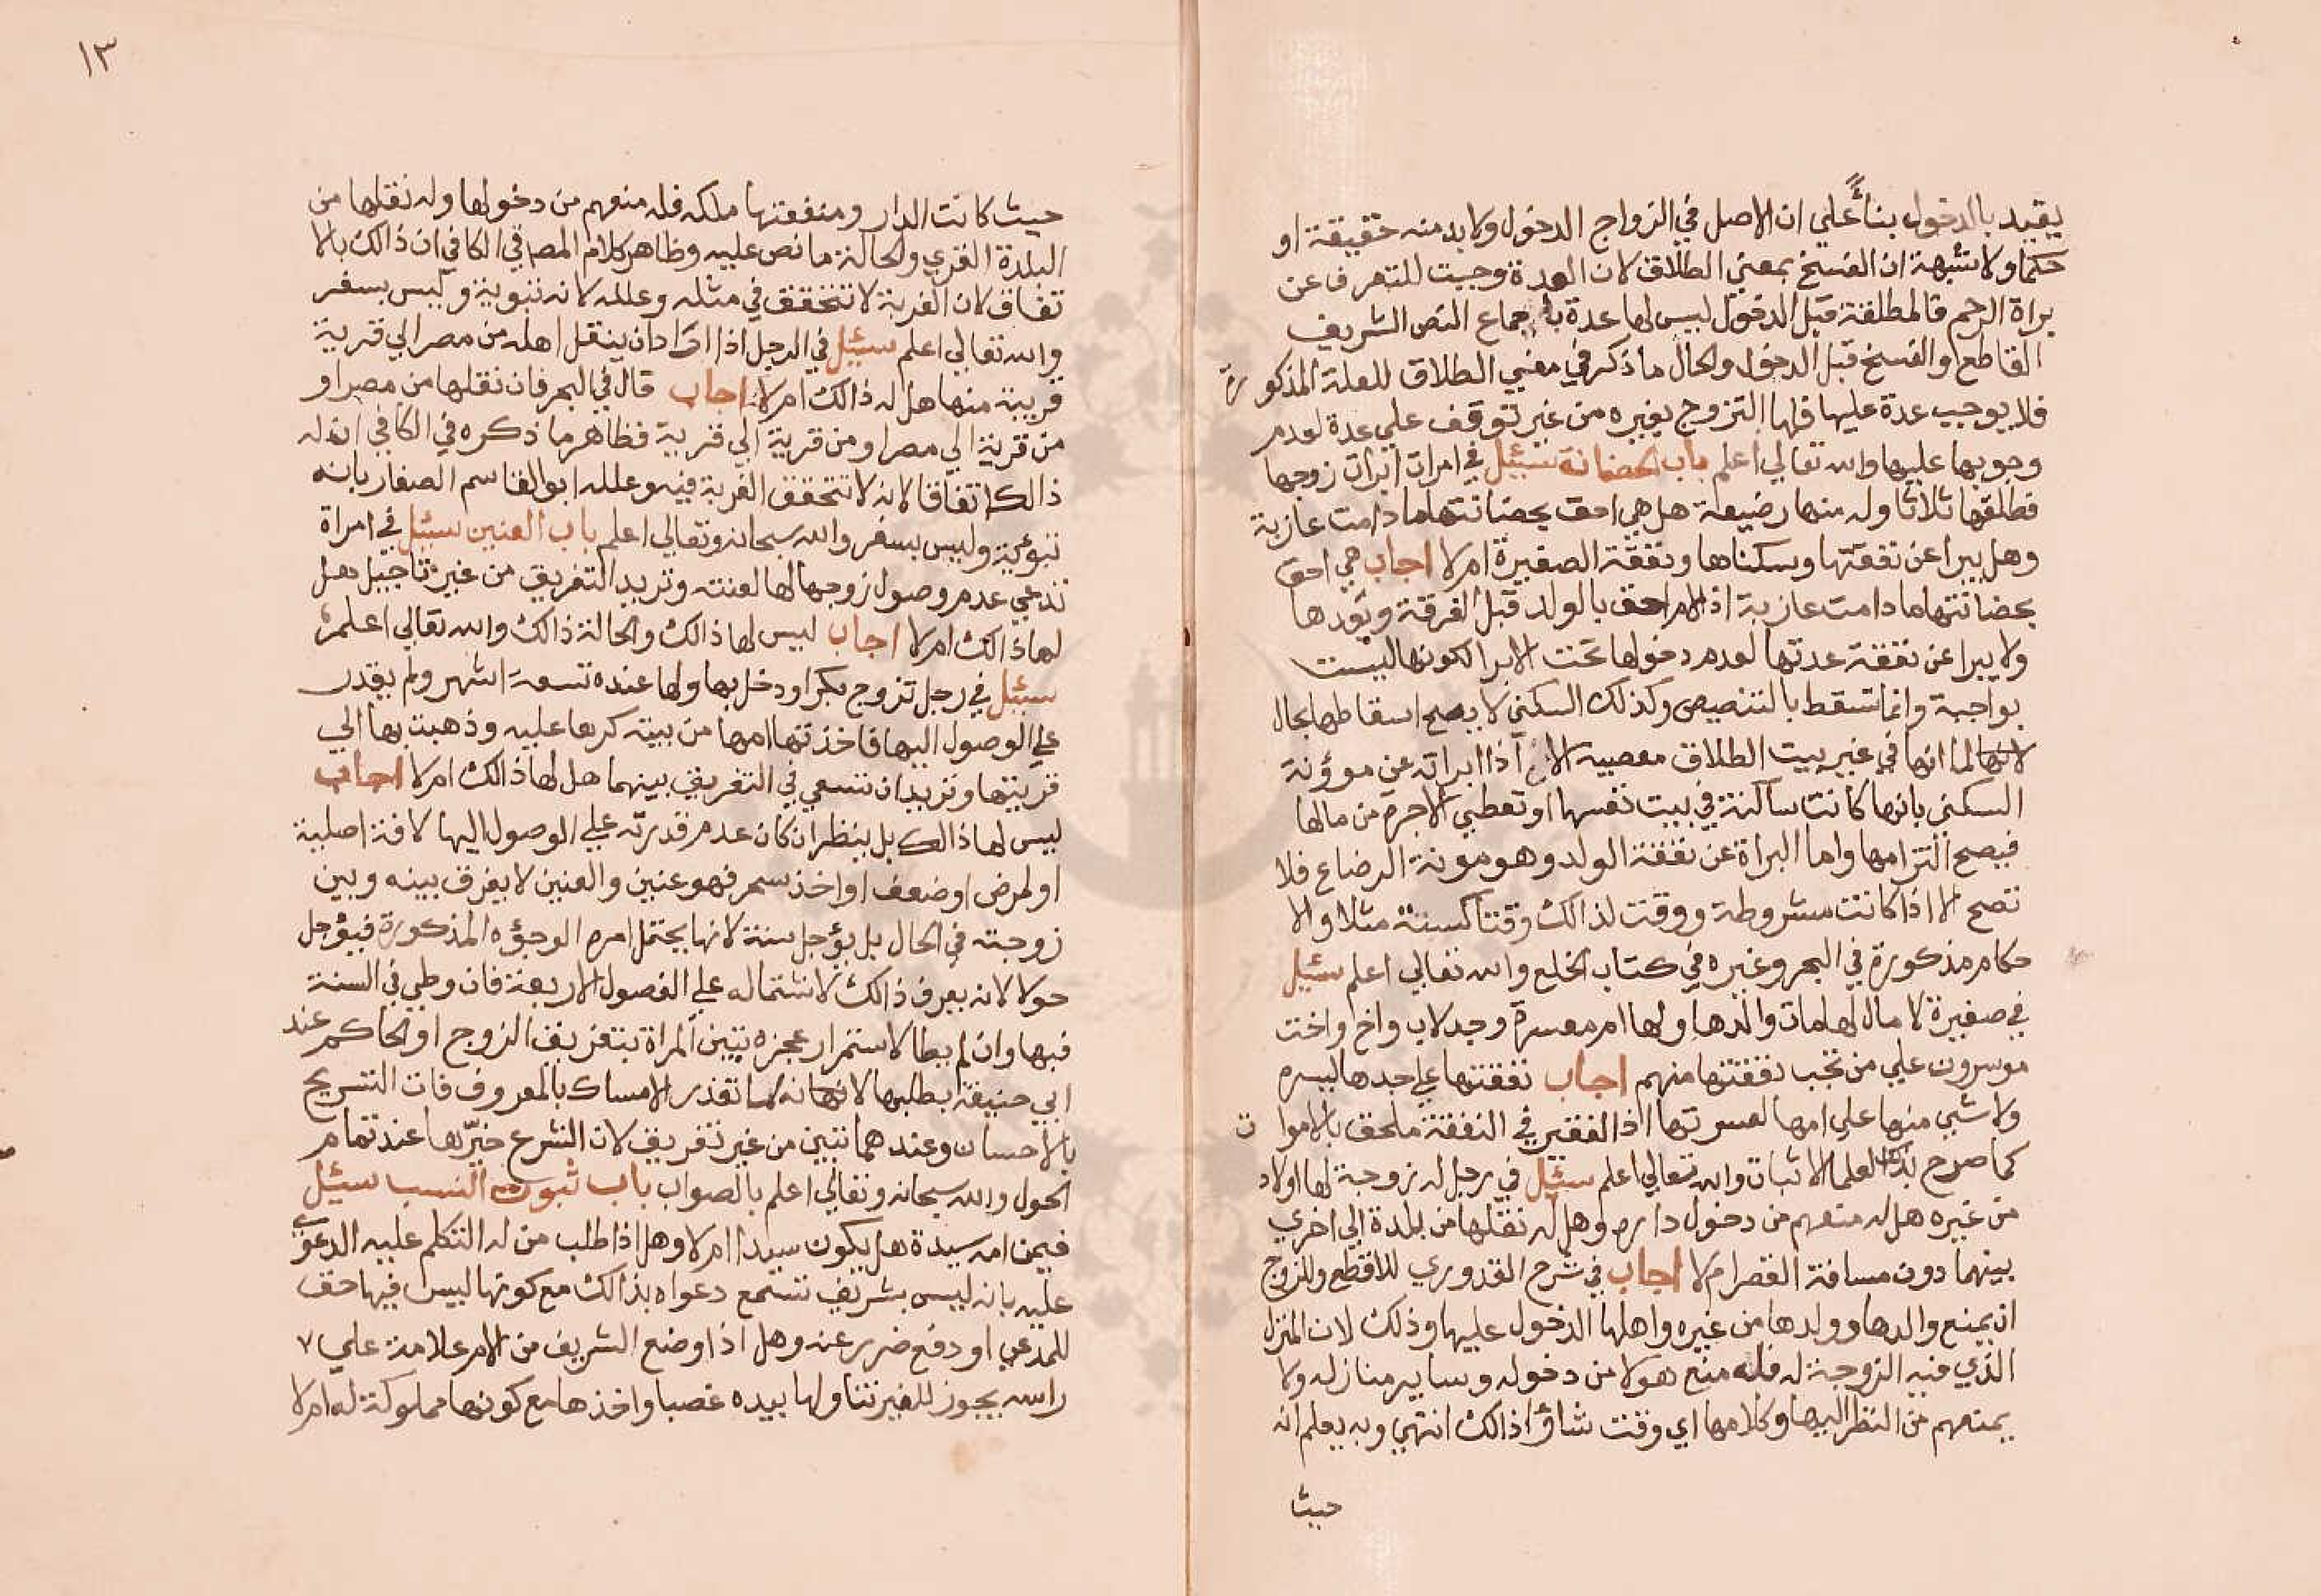 يقيد بالدخول بناءً علي ان الاصل في الزواج الدخول ولابد منه حقيقة او
حكما ولا شبهة ان الفسخ بمعني الطلاق لان العدة وجبت للتعرف عن
براة الرحم فالمطلقة قبل الدخول ليس لها عدة باجماع النص الشريف
القاطع والفسخ قبل الدخول والحال ما ذكر في معني الطلاق للعلة المذكورة
فلا يوجب عدة عليها فلها التزوج بغيره من غير توقف علي عدة لعدم
وجوبها عليها والله تعالي اعلم باب الحضانة سئيل في امرات ابرات زوجها
فطلقها ثلاثا وله منها رضيعة هل هي احق بحضانتها ما دامت عازبة
وهل يبرا عن نفقتها وسكناها ونفقة الصغيرة ام لا اجاب هي احق
بحضانتها ما دامت عازبة اذ الام احق بالولد قبل الفرقة وبعدها
ولا يبرا عن نفقة عدتها لعدم دخولها تحت الابرا لكونها ليست
بواجبة وانما تسقط بالتنصيص وكذلك السكني لا يصح اسقاطها بحال
لانها لما انها في غير بيت الطلاق معصيه الا اذا ابراته عن موؤنة
السكني بانها كانت ساكنة في بيت نفسها او تعطي الاجرة من مالها
فيصح التزامها واما البراة عن نفقة الولد وهو مونة الرضاع فلا
تصح الا اذا كانت مشروطة ووقت لذالك وقتا كسنة مثلا والا
حكام مذكورة في البحر وغيره في كتاب الخلع والله تعالي اعلم سئيل
في صغيرة لا مال لها مات والدها ولها ام معسرة وجد لاب واخ واخت
موسرون علي من تجب نفقتها منهم اجاب نفقتها علي جدها ليسره
ولا شي منها علي امها لعسرتها اذ الفقير في النفقة ملحق بالاموات
كما صرح بذلك العلما الاثبات والله تعالي اعلم سئيل في رجل له زوجة لها اولاد
من غيره هل له منعهم من دخول داره وهل له نقلها من بلدة الي اخري
بينهما دون مسافة القصر ام لا اجاب في شرح القدوري للاقطع وللزوج
ان يمنع والدها وولدها من غيره واهلها الدخول عليها وذلك لان المنزل
الذي فيه الزوجة له فله منع هولا من دخوله وساير منازله ولا
يمنعهم من النظر اليها وكلامها اي وقت شاؤا ذالك انتهي وبه يعلم انه
حيث
١٣
حيث كانت الدار ومنفعتها ملكه فله منعهم من دخولها وله نقلها من
البلدة القري والحالة ما نص عليه وظاهر كلام المص في الكافي ان ذالك بالا
تفاق لان الغربة لا تتحقق في مثله وعلله لانه تبوية وليس بسفر
والله تعالي اعلم سئيل في الرجل اذا اراد ان ينقل اهله من مصر الي قرية
قريبة منها هل له ذالك ام لا اجاب قال في البحر فان نقلها من مصر او
من قرية الي مصر او من قرية الي قرية فظاهر ما ذكره في الكافي ان له
ذالك اتفاقا لانه لا تتحقق الغربة فيه وعلله ابو القاسم الصفار بانه
تبوئية وليس بسفر والله سبحانه وتعالي اعلم باب العنين سئيل في امراة
تدعي عدم وصول زوجها لها لعنته وتريد التفريق من غير تاجيل هل
لها ذالك ام لا اجاب ليس لها ذالك والحالة ذالك والله تعالي اعلم
سئيل في رجل تزوج بكرا ودخل بها ولها عنده تسعة اشهر ولم يقدر
علي الوصول اليها فاخذتها امها من بيته كرها عليه وذهبت بها الي
قريتها وتريد ان تسعي في التفريق بينهما هل لها ذالك ام لا اجاب
ليس لها ذالك بل ينظر ان كان عدم قدرته علي الوصول اليها لافة اصلية
او لمرض او ضعف او اخذ سحر فهو عنين والعنين لا يفرق بينه وبين
زوجته في الحال بل يؤجل سنة لانها يحتمل امره الوجؤه المذكورة فيؤجل
حولا لانه يعرف ذالك لاشتماله علي الفصول الاربعة فان وطي في السنة
فبها وان لم يطا لاستمرار عجزه تبين المراة بتفريق الزوج او الحاكم عند
ابي حنيفة بطلبها لانها نه لما تعذر الامساك بالمعروف فات التسريح
بالاحسان وعندهما تبين من غير تفريق لان الشرع خيّرها عند تمام
الحول والله سبحانه وتعالي اعلم بالصواب باب ثبوت النسب سئيل
فيمن امه سيدة هل يكون سيدا ام لا وهل اذا طلب من له التكلم عليه الدعوي
عليه بانه ليس بشريف تسمع دعواه بذالك مع كونها ليس فيها حق
للمدعي او دفع ضرر عنه وهل اذا وضع الشريف من الام علامة علي ٧
راسه يجوز للغير تناولها بيده غصبا واخذها مع كونها مملوكة له ام لا